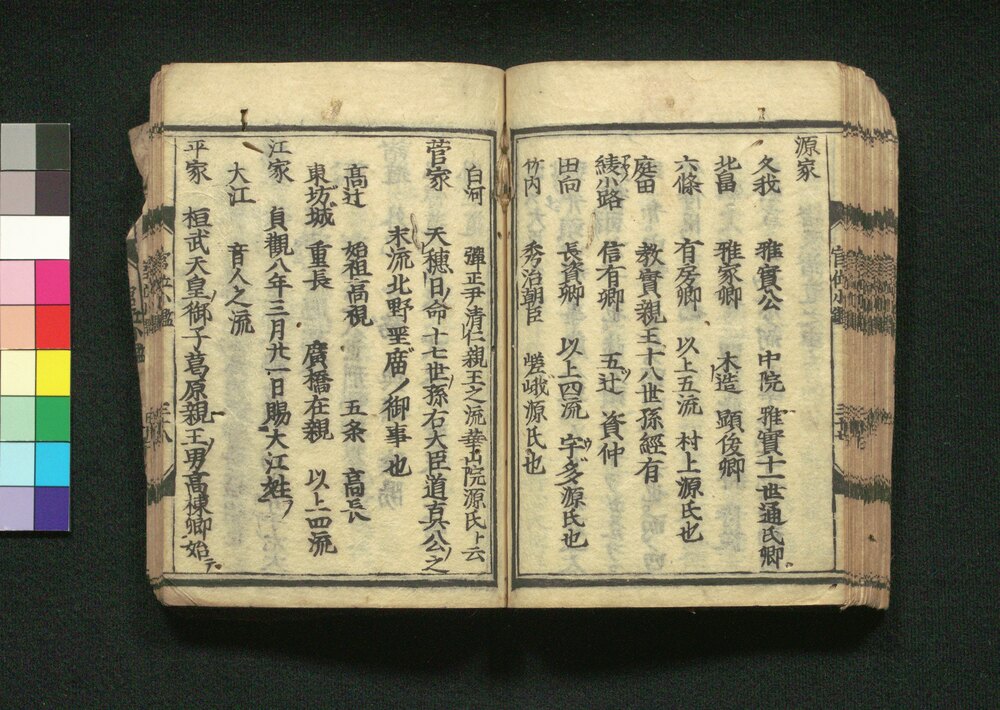 源家
久我 雅實公 中院 雅實十一世通氏卿
北畠 雅家卿 木造 顕俊卿
六條 有房卿 以上五流 村上源氏也
庭田 教實親王十八世孫經有
綾小路 信有卿 五辻 資仲
田向 長資卿 以上四流 宇多源氏也
竹内 秀治朝臣 嵯峨源氏也
白河 彈正尹清仁親王之流華山院源氏ト云
菅家 天穂日命十七世孫右大臣道真公之
末流北野聖廟ノ御事也
高辻 始祖高視 五条 高長
東坊城 重長 廣橋在親 以上四流
江家 貞觀八年三月廿一日賜大江姓
大江 音人之流
平家 桓武天皇御子葛原親王男高棟卿始テ